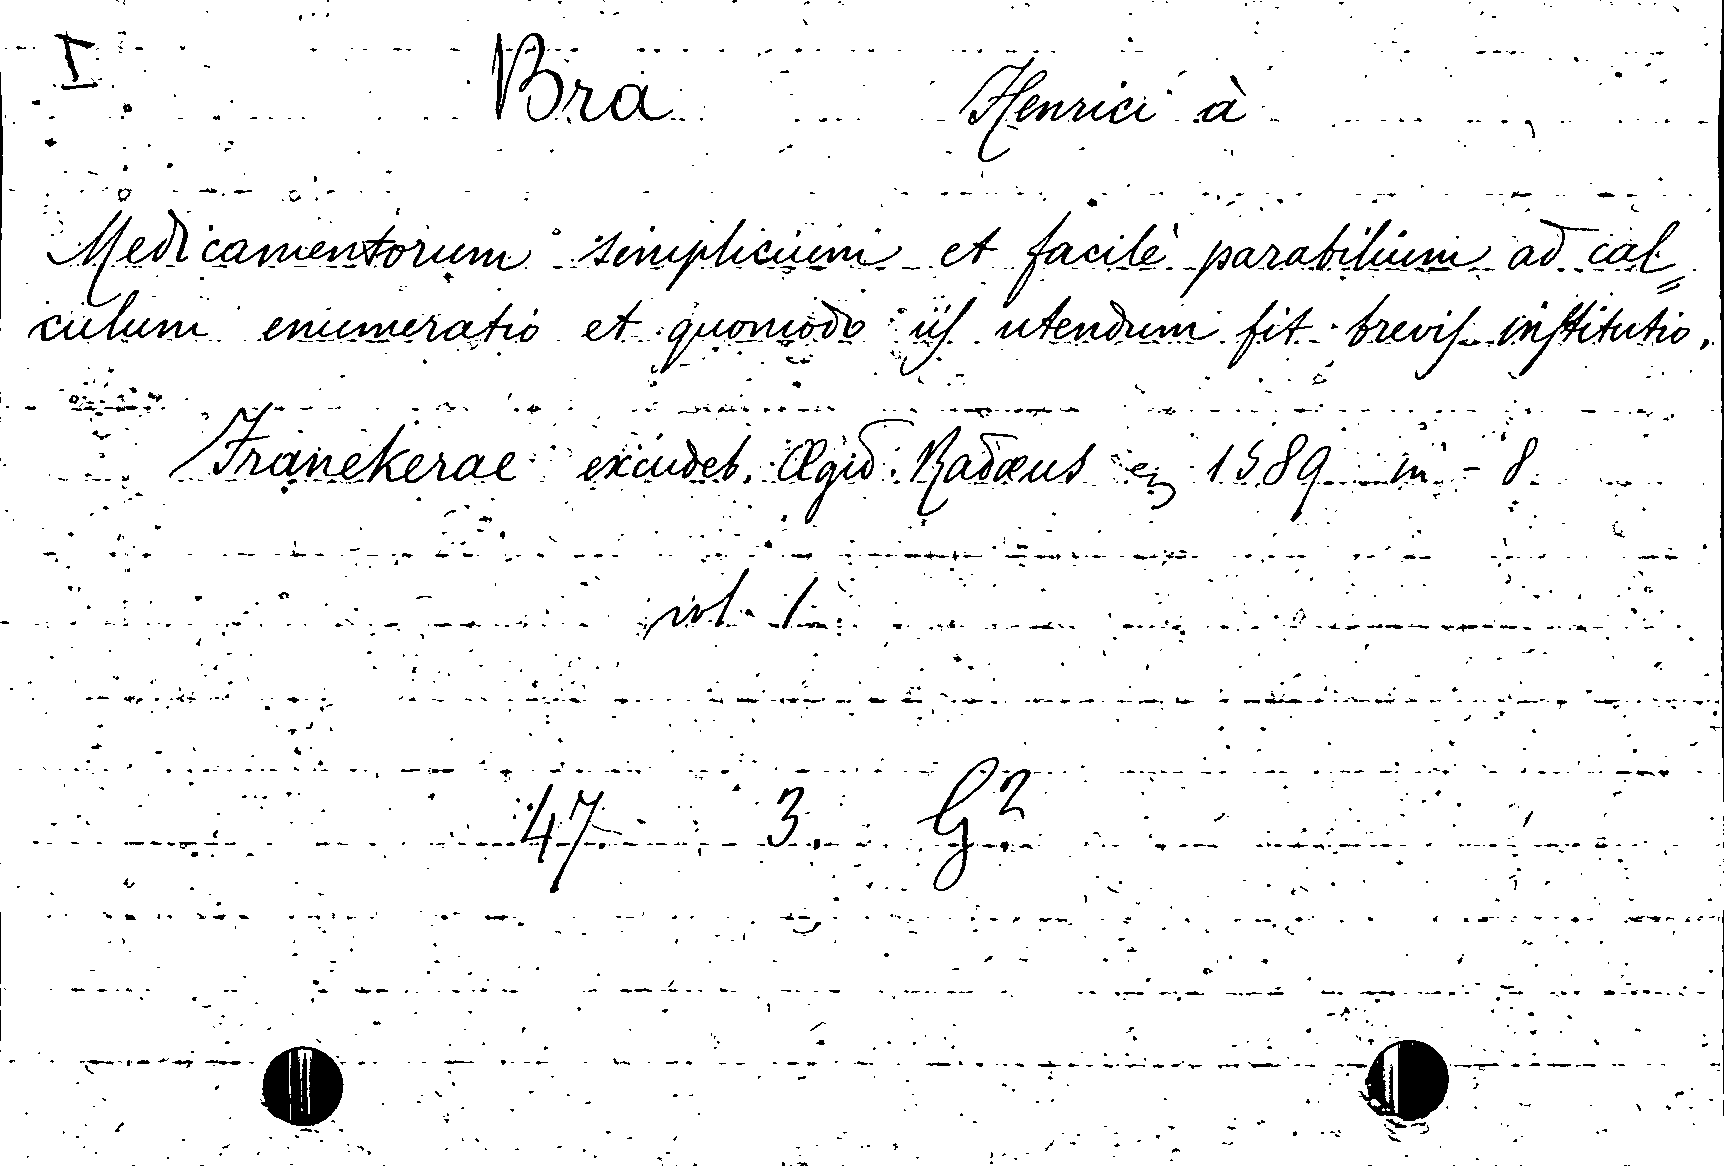 I Bra Henrici à
Medicamentorum simplicium et facilè parabilium ad cal=
culum enumeratio et quomodo iiſ utendum ſit breviſ inſtitutio.
Franekerae excudeb. Ægid. Radæus 1589 in - 8
vol. 1
47 3. G²